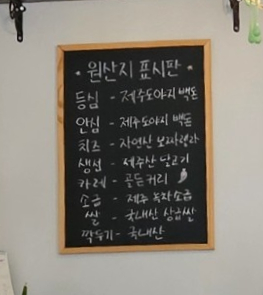 • 원산지 표시판 •
등심 - 제주도야지 백돈
안심 - 제주도야지 백돈
치즈 - 자연산 모짜렐라
생선 - 제주산 달고기
카레 - 골든커리
소금 - 제주 녹차소금
쌀 - 국내산 상급쌀
깍두기 - 국내산